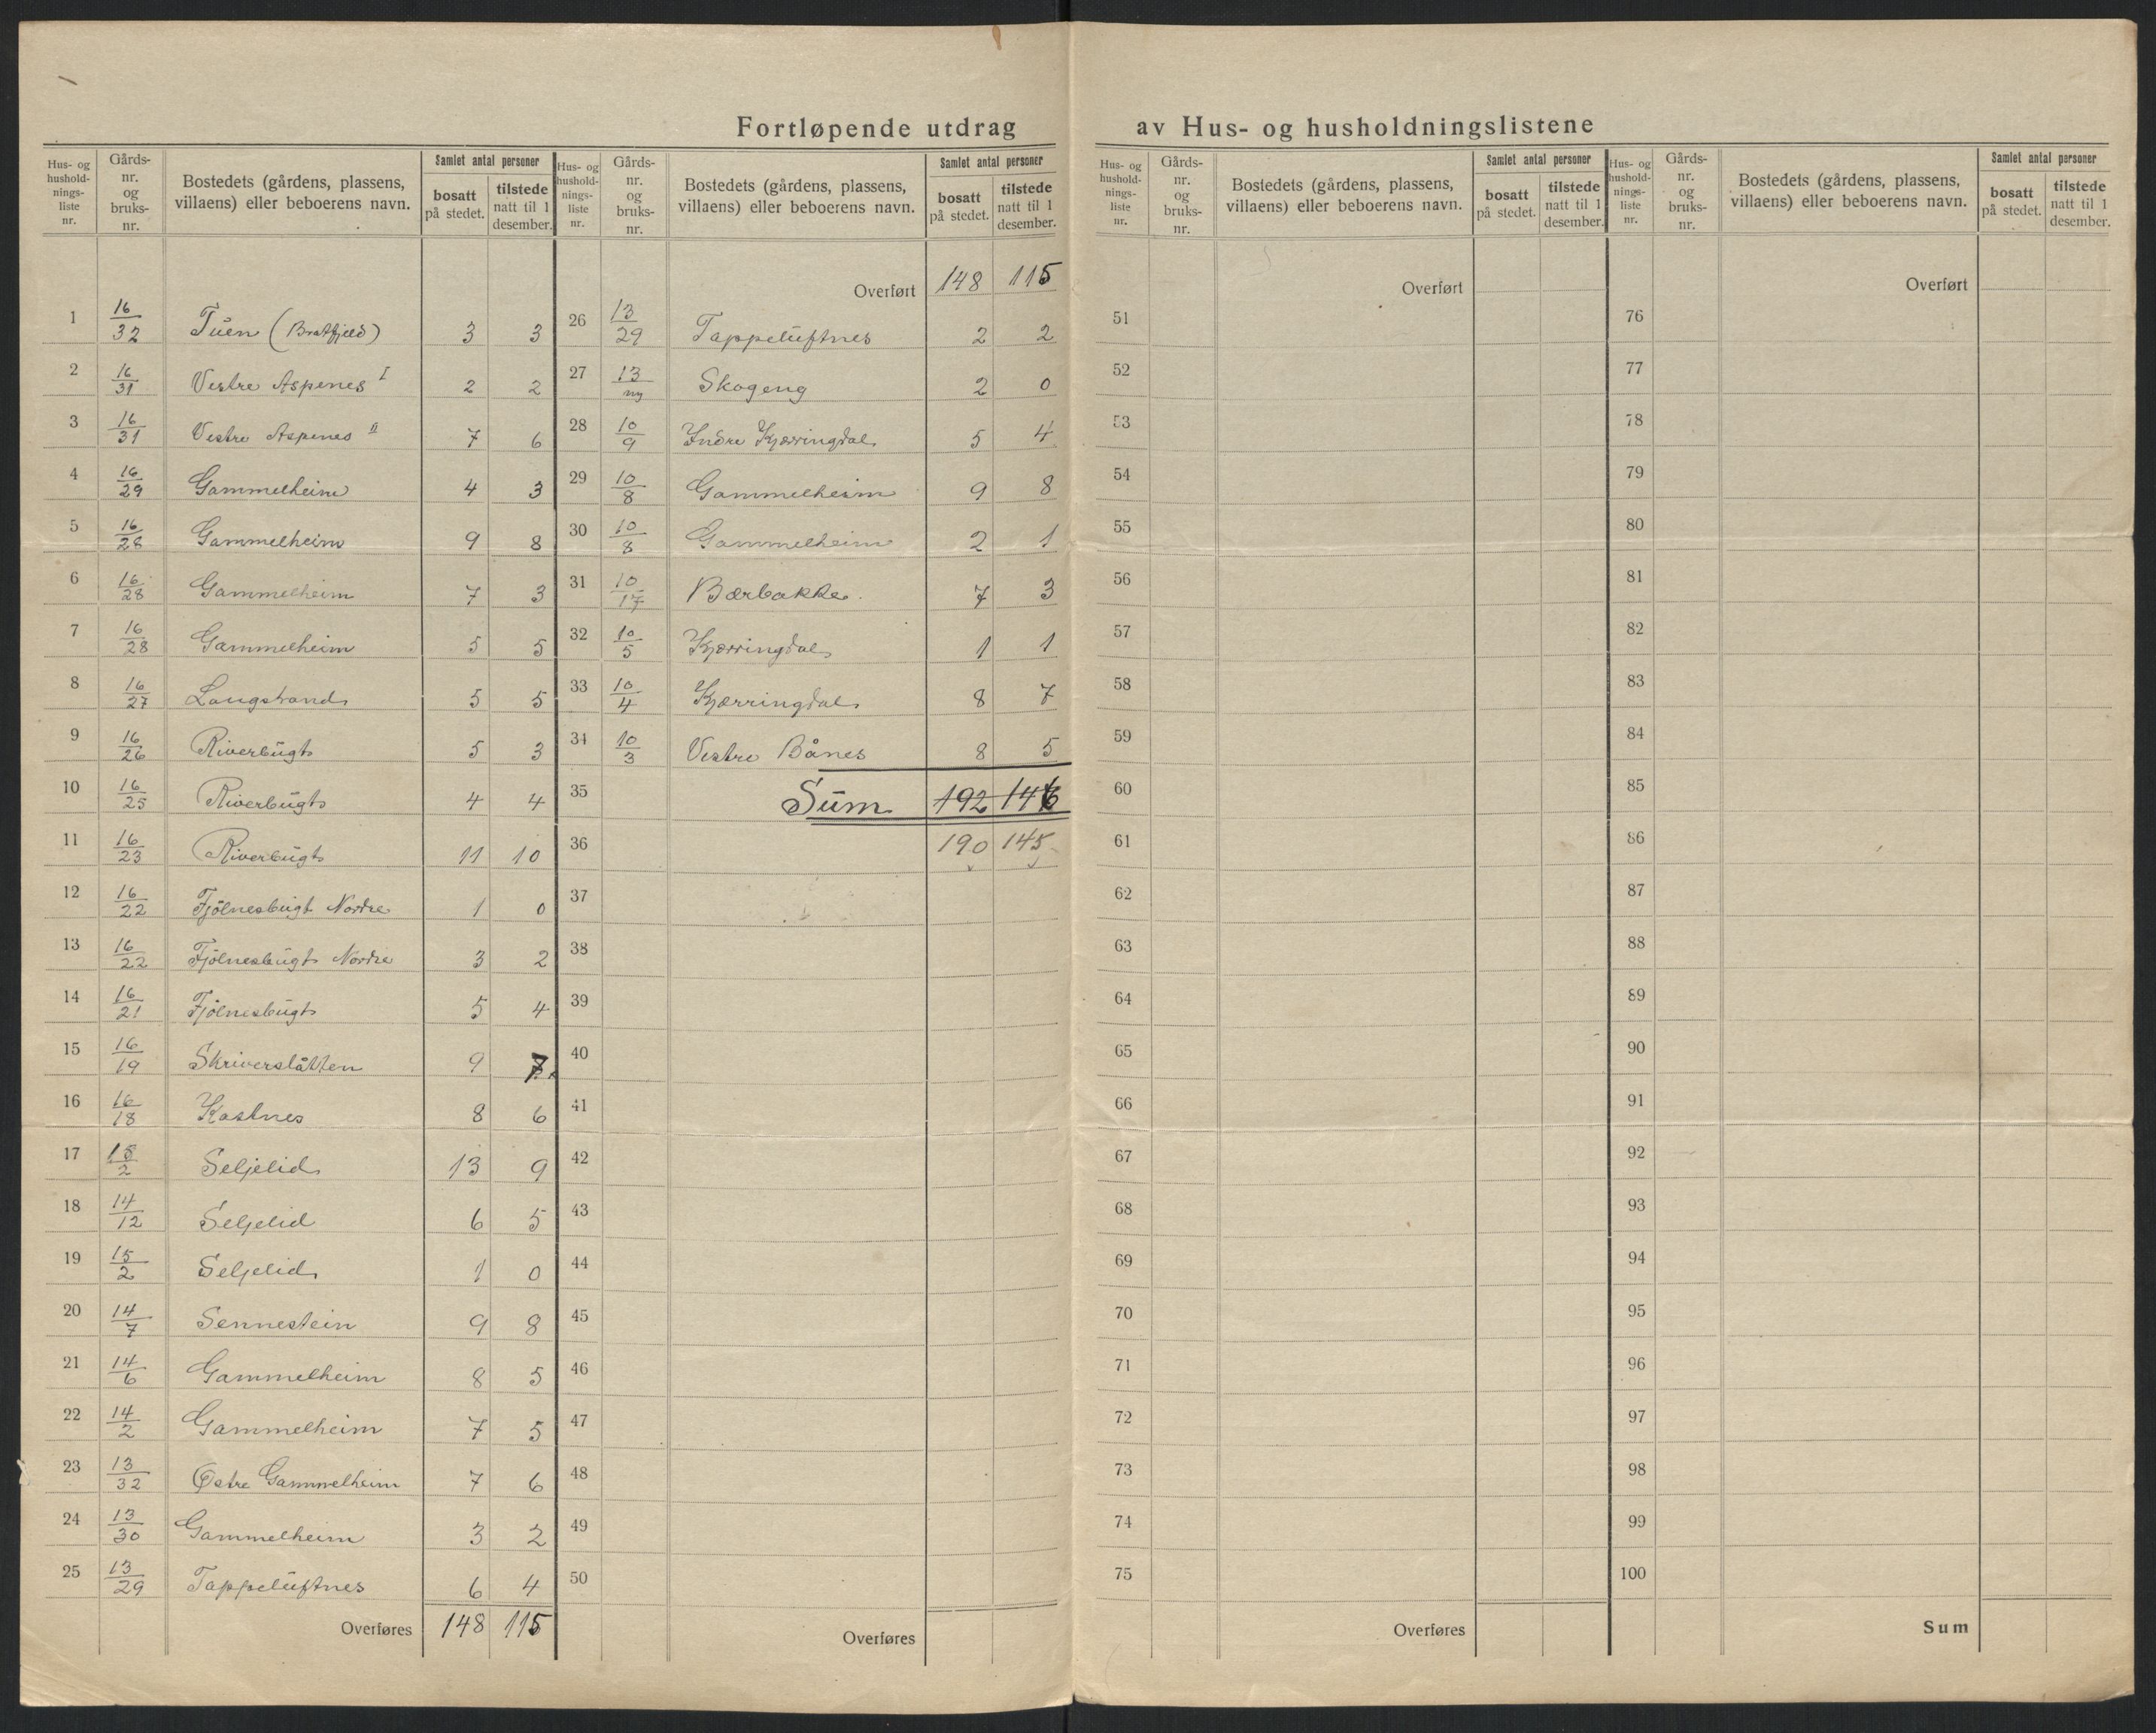 Fortløpende utdrag av Hus- og husholdningslistene
Hus- og husholdnings- liste nr. | Gårds- nr. og bruks- nr. | Bostedets (gårdens, plassens, villaens) eller beboerens navn. | Samlet antal personer: bosatt på stedet. | tilstede natt til 1 desember.
1 16/32 Tuen (Bratfjeld) 3 3
2 16/31 Vestre Aspenes I 2 2
3 16/31 Vestre Aspenes II 7 6
4 16/29 Gammelheim 4 3
5 16/28 Gammelheim 9 8
6 16/28 Gammelheim 7 3
7 16/28 Gammelheim 5 5
8 16/27 Langstrand 5 5
9 16/26 Riverbugt 5 3
10 16/25 Riverbugt 4 4
11 16/23 Riverbugt 11 10
12 16/22 Fjölnesbugt Nordre 1 0
13 16/22 Fjölnesbugt Nordre 3 2
14 16/21 Fjölnesbugt 5 4
15 16/19 Skriverslåtten 9 7
16 16/18 Kastnes 8 6
17 15/2 Seljelid 13 9
18 14/12 Seljelid 6 5
19 15/2 Seljelid 1 0
20 14/7 Sennestein 9 8
21 14/6 Gammelheim 8 5
22 14/2 Gammelheim 7 5
23 13/32 Østre Gammelheim 7 6
24 13/30 Gammelheim 3 2
25 13/29 Tappeluftnes 6 4
Overføres 148 115
Hus- og husholdnings- liste nr. | Gårds- nr. og bruks- nr. | Bostedets (gårdens, plassens, villaens) eller beboerens navn. | Samlet antal personer: bosatt på stedet. | tilstede natt til 1 desember.
Overført 148 115
26 13/29 Tappeluftnes 2 2
27 13/ny Skogeng 2 0
28 10/9 Indre Kjærringdal 5 4
29 10/8 Gammelheim 9 8
30 10/8 Gammelheim 2 1
31 10/17 Bærbakke 7 3
32 10/5 Kjærringdal 1 1
33 10/4 Kjærringdal 8 7
34 10/3 Vestre Bånes 8 5
35 Sum 192 146
36 190 145
37
38
39
40
41
42
43
44
45
46
47
48
49
50
Overføres
Hus- og husholdnings- liste nr. | Gårds- nr. og bruks- nr. | Bostedets (gårdens, plassens, villaens) eller beboerens navn. | Samlet antal personer: bosatt på stedet. | tilstede natt til 1 desember.
Overført
51
52
53
54
55
56
57
58
59
60
61
62
63
64
65
66
67
68
69
70
71
72
73
74
75
Overføres
Hus- og husholdnings- liste nr. | Gårds- nr. og bruks- nr. | Bostedets (gårdens, plassens, villaens) eller beboerens navn. | Samlet antal personer: bosatt på stedet. | tilstede natt til 1 desember.
Overført
76
77
78
79
80
81
82
83
84
85
86
87
88
89
90
91
92
93
94
95
96
97
98
99
100
Sum